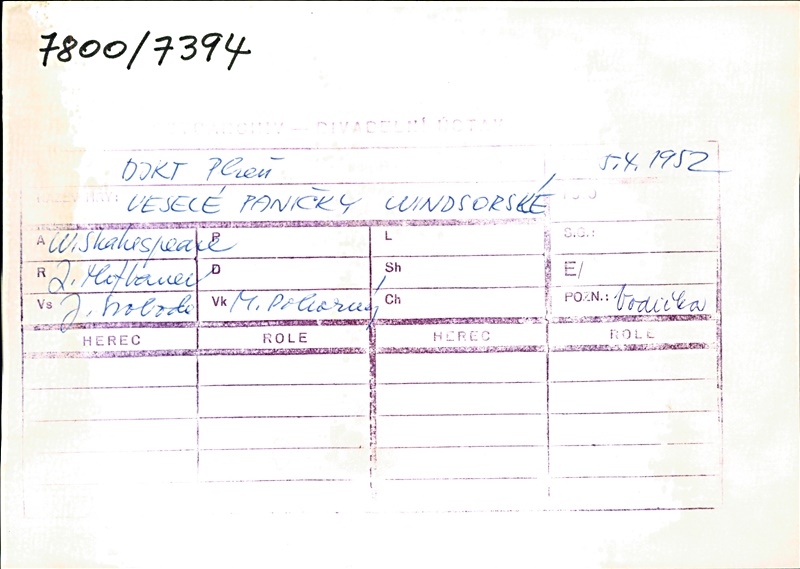 7800/7394
DIVADELNÍ ÚSTAV
DJKT Plzeň 5.4.1952
VESELÉ PANIČKY WINDSORSKÉ
A W. Shakespeare P L S.G.:
R D Sh E/
Vs J. Svoboda Vk M. Pokorný Ch POZN.: Vodička
HEREC ROLE HEREC ROLE